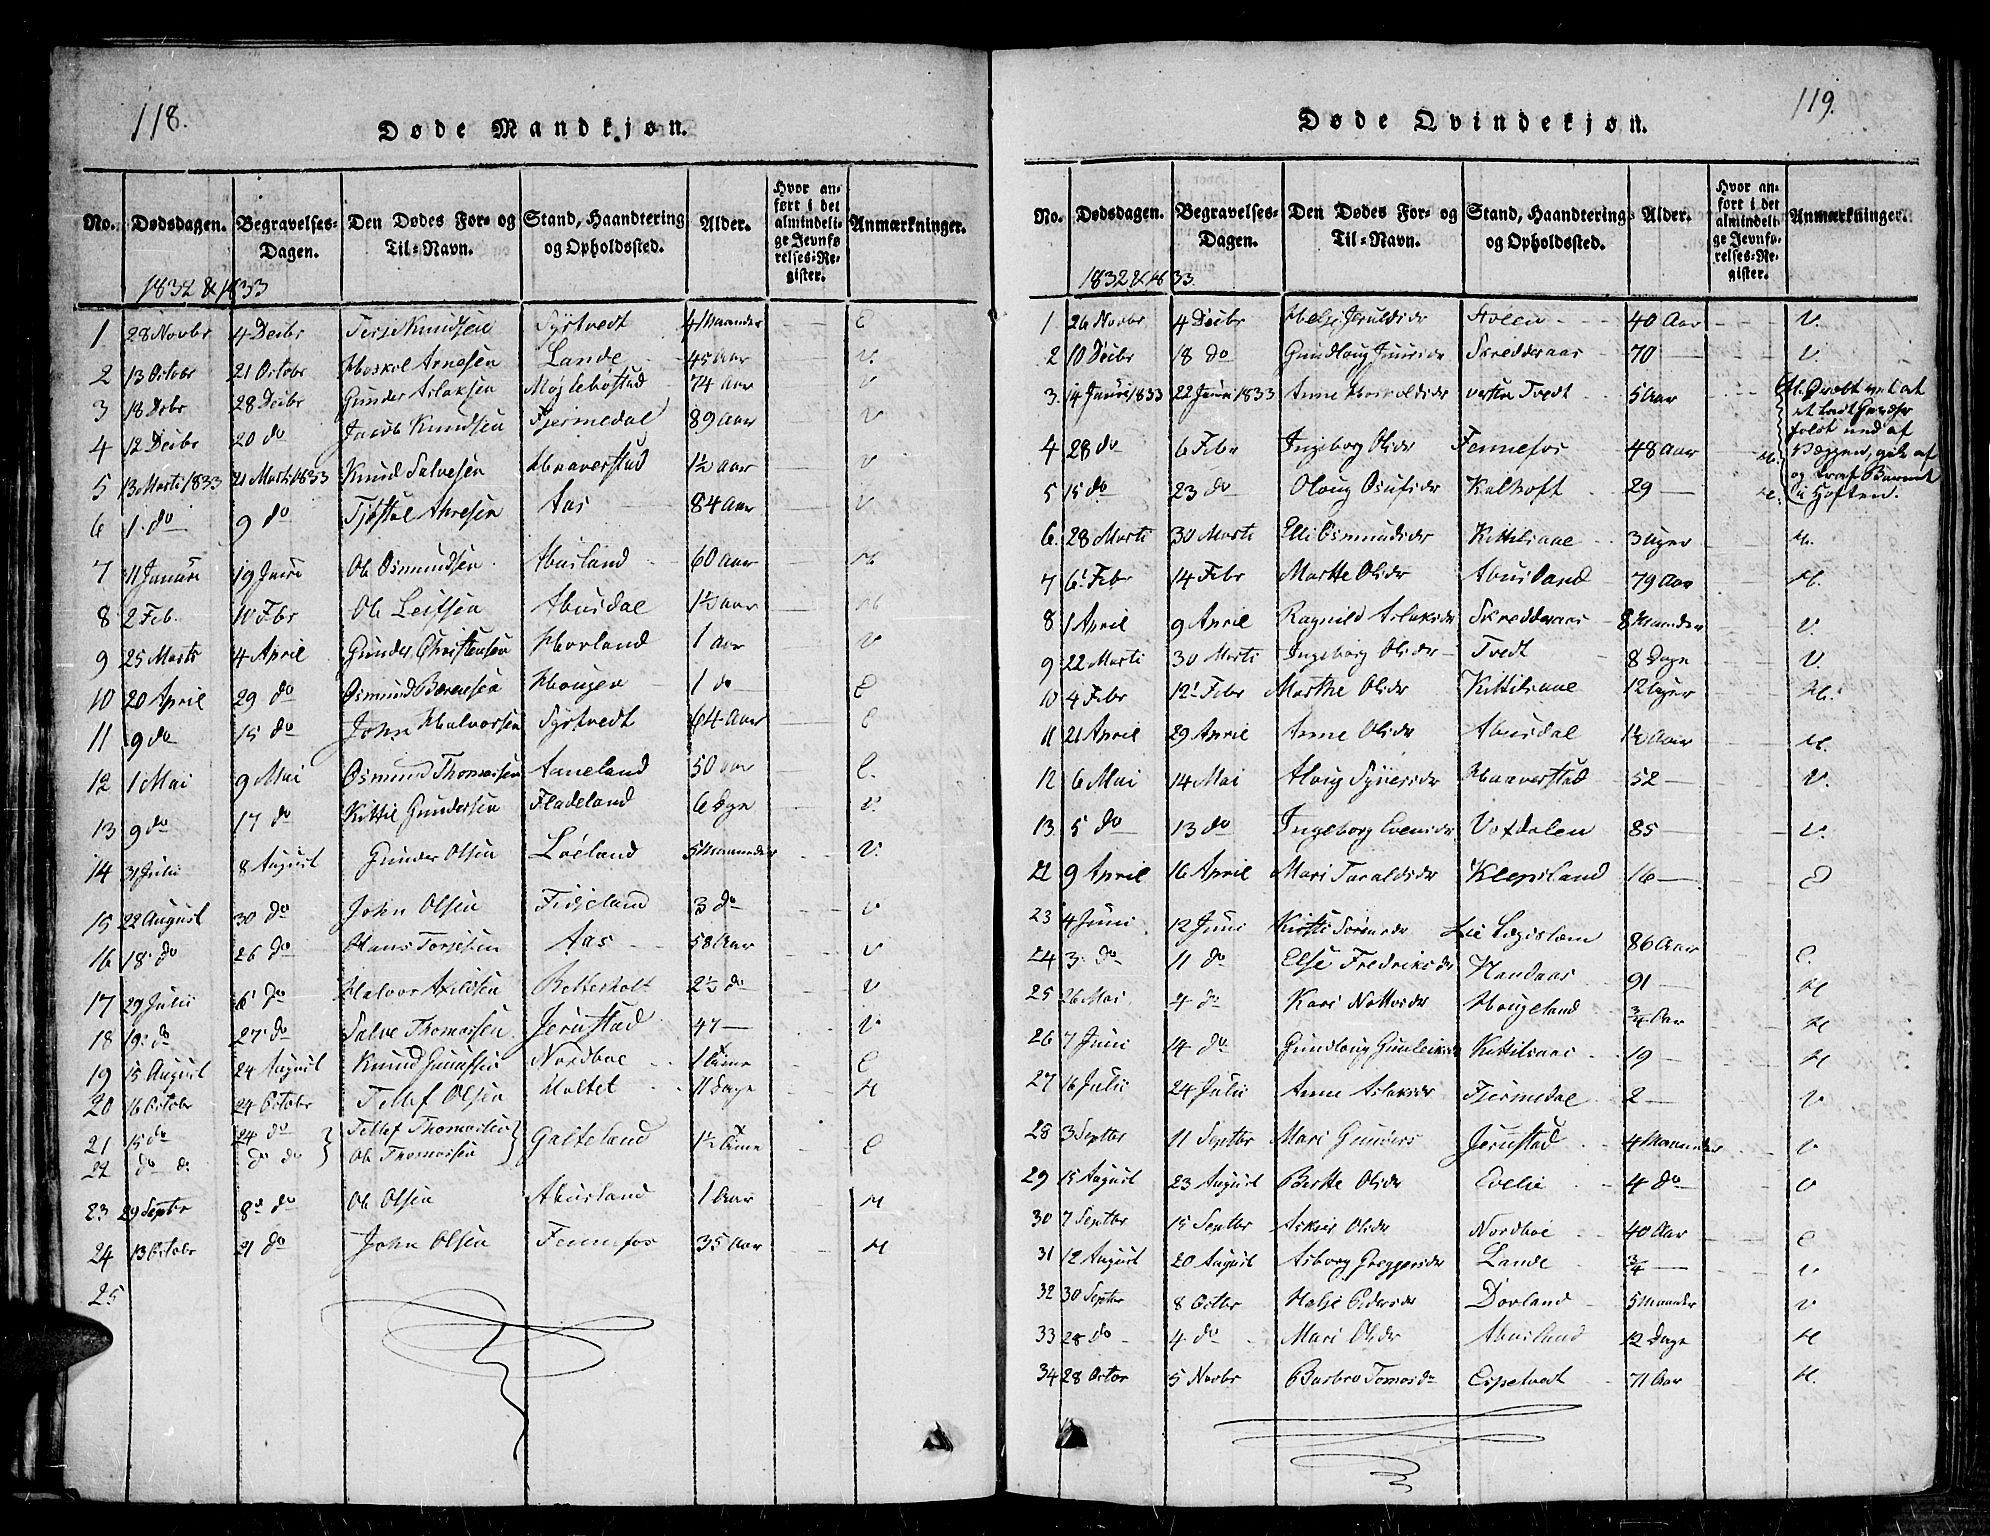 118.
Døde Mandkjøn.
No. Dødsdagen. Begravelses-Dagen. Den Dødes For- og Til-Navn. Stand, Haandtering og Opholdssted. Alder. Hvor anført i det almindelige Jevnførelses-Register. Anmærkninger.
1832 & 1833
1 28 Novbr 4 Decbr Terje Knudsen Syrtvedt 4 Maaneder E
2 13 Octobr 21 Octobr Arnesen Lande 45 Aar V.
3 18 Dcbr 28 Decbr Gunder Aslaksen 74 Aar V
4 12 Decbr 20 do Jacob Knudsen Fjermedal 89 Aar V
5 13 Marti 1833 21 Marti 1833 Knud Salvesen Haaverstad 1½ Aar V
6 1. do 9 do Aas 84 Aar V.
7 11 Januri 19 Janri Ole Osmundsen Abusland 60 Aar H
8 2 Feb. 10 Febr Ole Leifsen Abusdal 1½ Aar H
9 25 Marts 4 April Gunder Christensen Hovland 1 Aar V
10 20 April 29 do Osmund Haugen 1 do E
11 9 do 15 do John Halvorsen Syrtvedt 64 Aar E
12 1 Mai 9 Mai Osmund Thomassen Aaneland 50 Aar E.
13 9 do 17 do Kittil Gundersen Fladeland 6 Dge V.
14 31 Julii 8 August Gunder Olsen Løeland 5 Maaneder V.
15 22 August 30 do John Olsen Fidjeland 3 do V
16 18. do 26 do Hans Terjesen Aas 58 Aar V
17 29 Julii 6 do Halvor 2½ do V
18 19. do 27 do Salve Thomassen Jerustad 47 — V
19 15 August 24 August Knud Nordboe 1 Time E
20 16 Octobr 24 Octobr Tellef Olsen 11 Dage H
21 15 do 24 do Tellef Thomassen Gaiteland 1½ Time E
22 do do do do Ole Thomassen
23 29 Septbr 8 do do Ole Olsen Abusland 1 Aar H
24 13 Octobr 21 do John Olsen Fennefos 35 Aar H
25
119.
Døde Qvindekjøn.
No. Dødsdagen. Begravelses-Dagen. Den Dødes For- og Til-Navn. Stand, Haandtering og Opholdssted. Alder. Hvor anført i det almindelige Jevnførelses-Register. Anmærkninger.
1832 & 1833.
1 26 Novbr 4 Decbr Helje 40 Aar V.
2 10 Decbr 18 do Gundloug Skreddraas 70 — V
3. 14 Januri 1833 22 Janri 1833 Anne Tvedt 5 Aar
4 28 do 6 Febr Ingeborg Olsdr Fennefos 48 Aar H.
5 15 do 23 do Oloug Kalhoft 29 — H.
Vægen, gik af
og traf Barnet
i Hoften.
6. 28 Marti 30 Marti Elli Osmundsdr Kittilsaae 3 Uger H.
7 6 Febr 14 Febr Marthe Olsdr Abusland 79 Aar H.
8 1 April 9 April Ragnild Aslaksdr Skreddraas 8 Maaneder V.
9 22 Marti 30 Marti Ingeborg Olsdr Tvedt 8 Dage V.
10 4 Febr 12 Febr Marthe Olsdr Kittilsaae 12 Uger H.
11 21 April 29 April Anne Olsdr Abusdal 1½ Aar H.
12 6 Mai 14 Mai Aloug Haaverstad 52 — V.
13. 5 do 13 do Ingeborg Evensdr Vatdalen 85 — V.
22 9 April 16 April Mari Taraldsdr Klepsland 16 — E
23 4 Juni 12 Juni Kirsti 86 Aar E.
24 3. do 11 do Else Fredriksdr 91 — H
25 26 Mai 4 do Kari Hougeland ¾ Aar H
26 7 Juni 14 do Gundloug Gunleiksdr Kittilsaae 19 — H
27 16 Julii 24 Julii Anne Aslaksdr Fjermedal 2 — V
28 3 Septbr 11 Septbr Mari Gunders Jerustad 4 Maaneder V
29 15 August 23 August Berthe Olsdr Evelie 4 do V
30 7 Septbr 15 Septbr Olsdr Nordboe 40 Aar E
31 12 August 20 August Asborg Lande ¾ — V
32 30 Septbr 8 Octbr Helje Pedersdr Dovland 5 Maaneder V
33 28 do 4. do Mari Olsdr Abusland 12 Dage H
34 28 Octor 5 Novbr Barbro Espetvedt 71 Aar H.